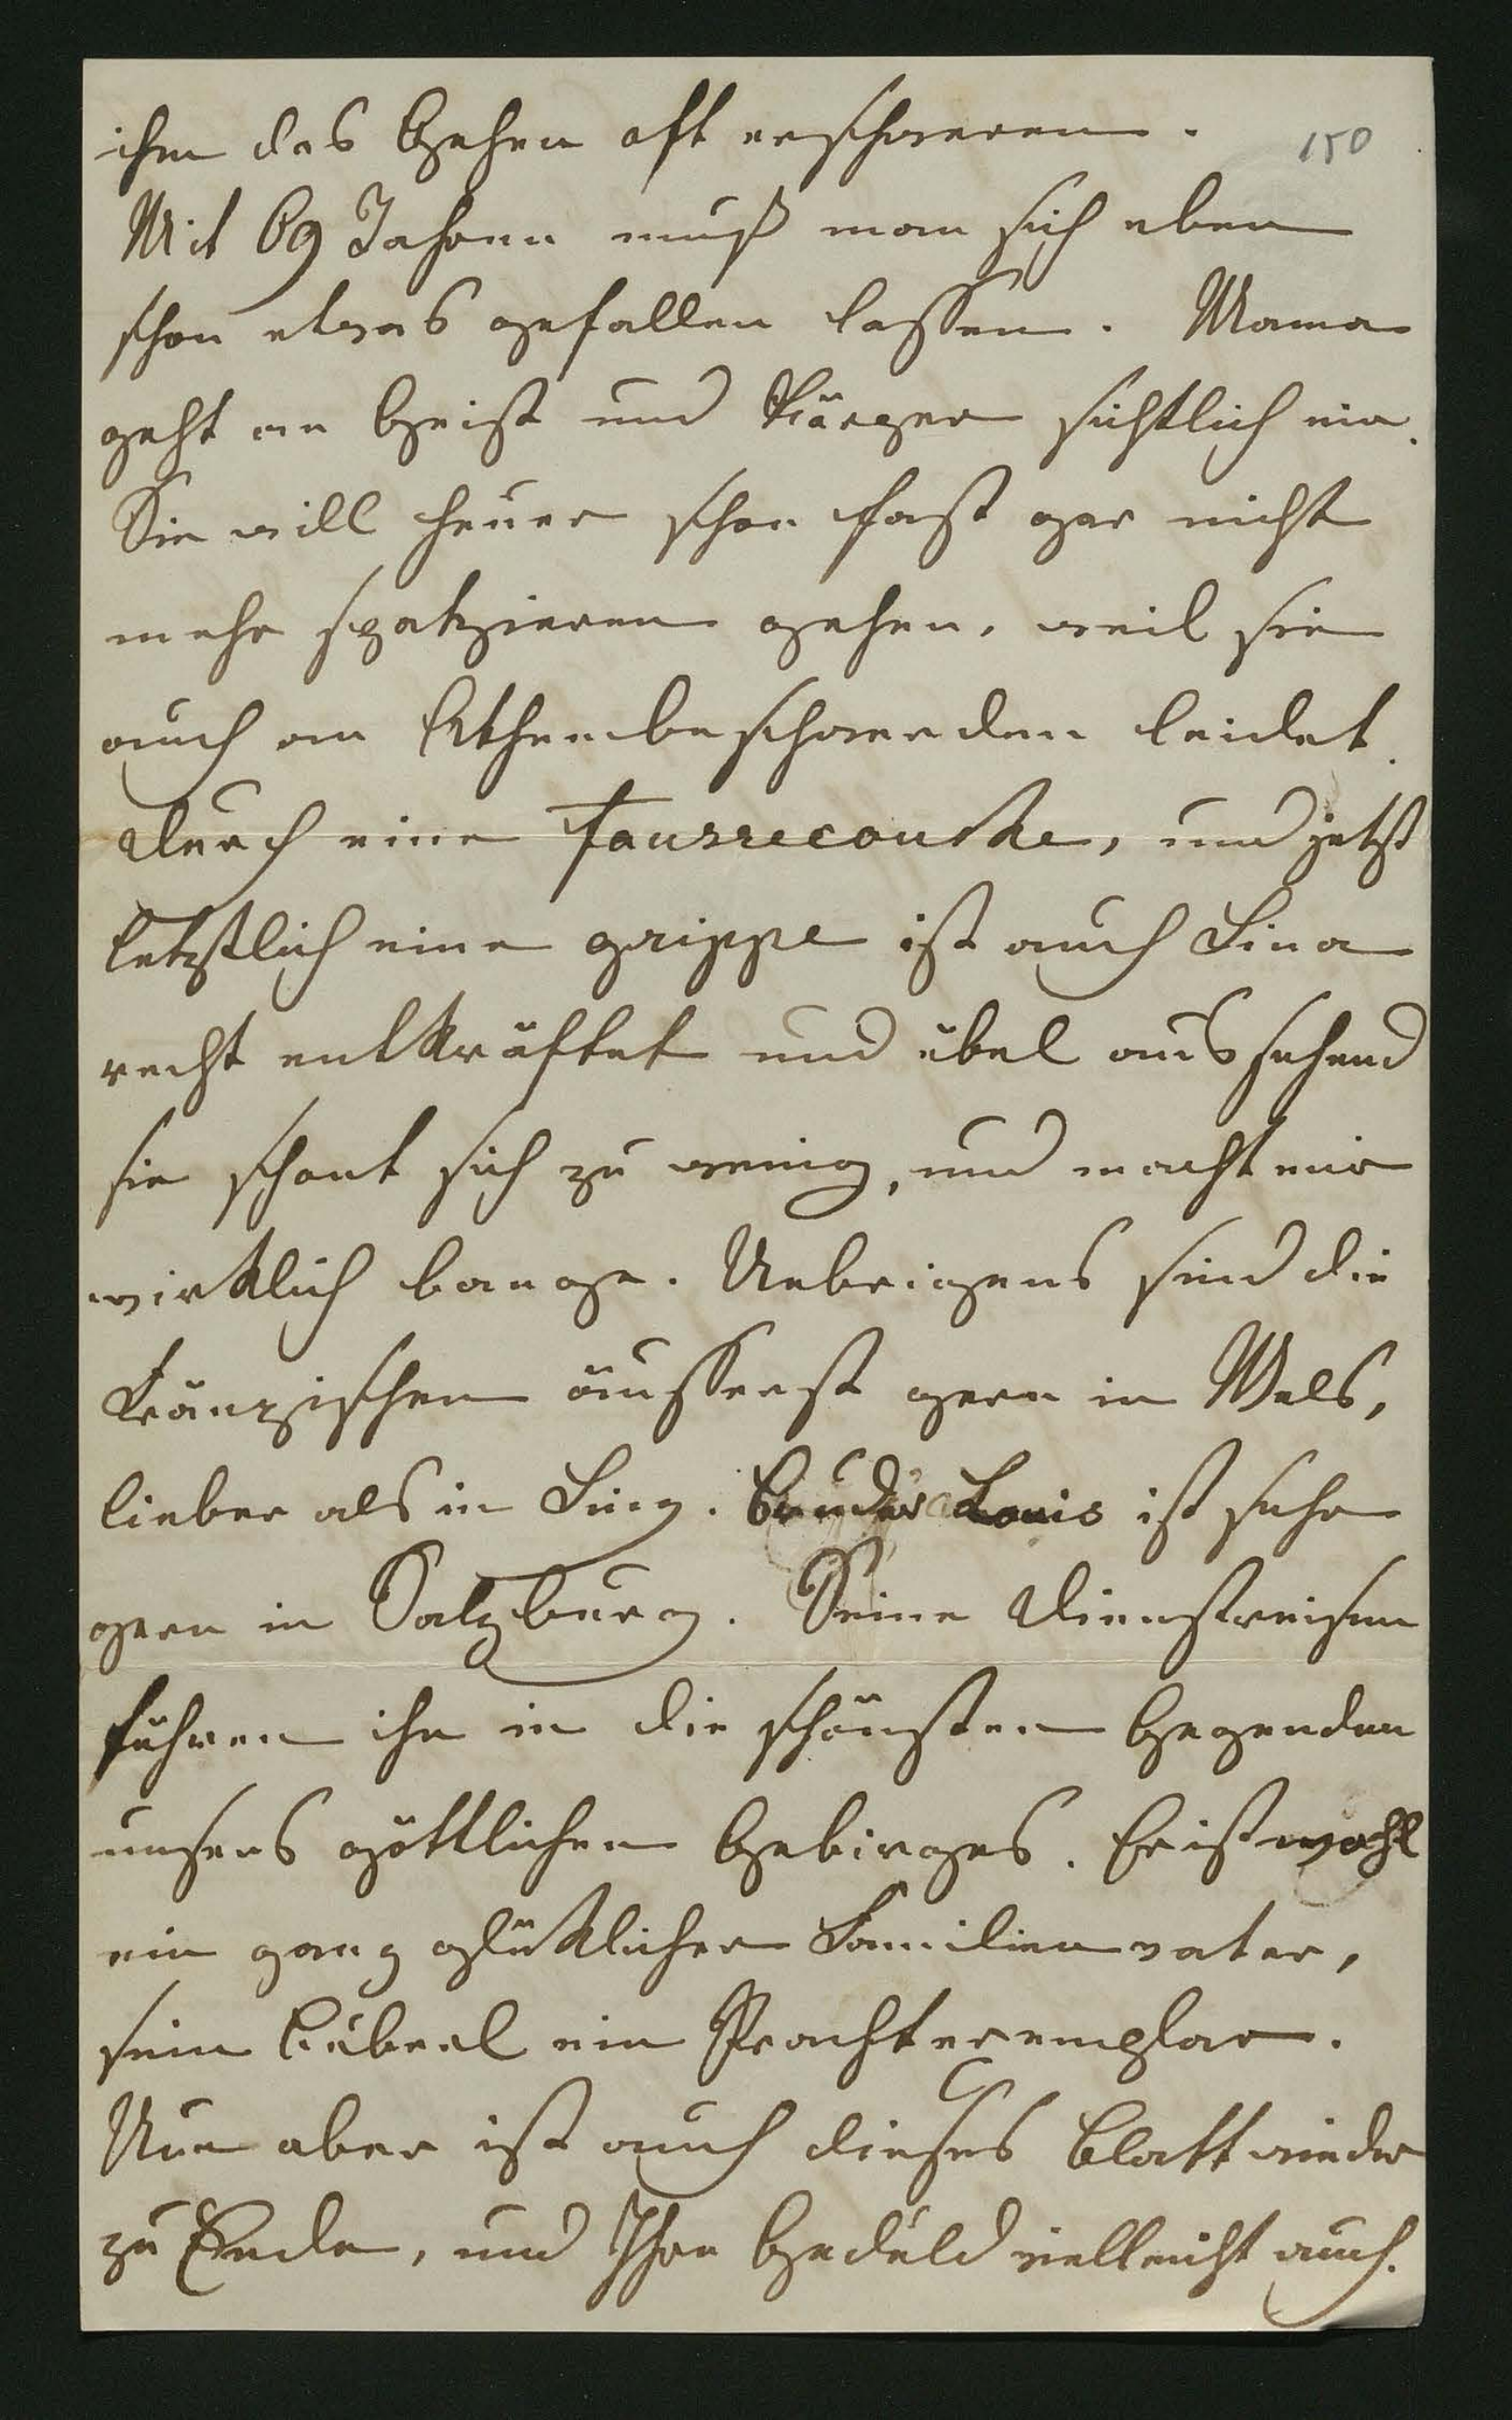 ihm das Gehen oft erschweren.
150
Mit 69 Jahren muß man sich eben
schon etwas gefallen lassen. Mama
geht an Geist und Körper sichtlich ein.
Sie will heuer schon fast gar nicht
mehr spatzieren gehen, weil sie
auch an Athembeschwerden leidet.
Durch eine Faussecouche, und jetzt
letztlich eine grippe ist auch Lina
recht entkräftet und übel aussehend
sie schont sich zu wenig, und macht mir
wirklich bange. Uebrigens sind die
Kränzischen äusserst gern in Wels,
lieber als in Linz. Bruder Louis ist sehr
gern in Salzburg. Seine Dienstreisen
führen ihn in die schönsten Gegenden
unsers göttlichen Gebirges. Er ist wohl
ein ganz glüklicher Familienvater,
sein Bübeel ein Prachtexemplar.
Nun aber ist auch dieses Blatt wieder
zu Ende, und Ihre Geduld vielleicht auch.